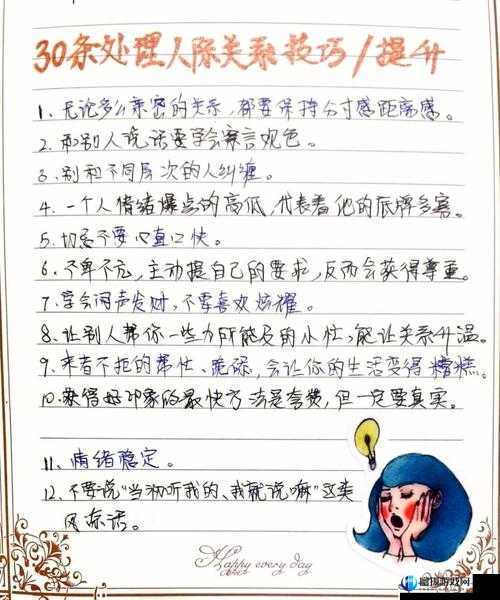 30条处理人际关系技巧/提升
1、无论多么亲密的关系，都要保持分寸感距离感。
2、和别人说话要学会察言观色。
3、别和不同层次的人纠缠。
4、一个人情绪爆点的高低，代表着他的底牌多寡。
5、切忌不要心直口快。
6、不卑不亢，主动提自己的要求，反而会获得尊重。
7、学会闷声发财，不要喜欢炫耀。
8、让别人帮你一些力所能及的小忙，能让关系升温。
9、来者不拒的帮忙、施舍，会让你的生活变得糟糕。
10、获得好印象的最快方法是夸赞，但一定要真实。
11、情绪稳定。
12、不要说“当初听我的、我就说嘛”这类
风凉话。
Happy every day